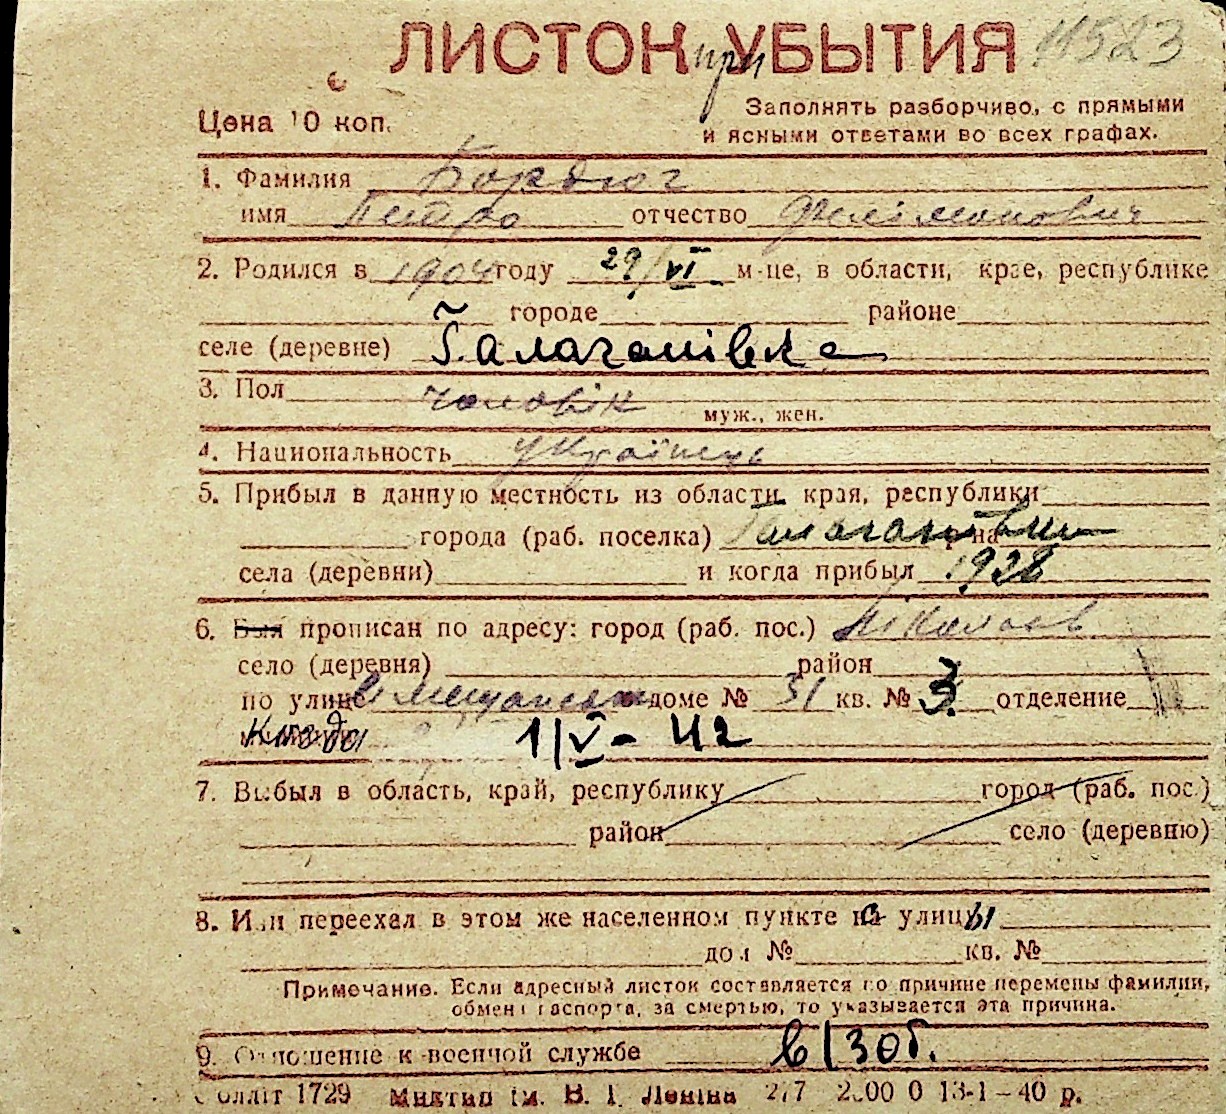 ЛИСТОК при УБЫТИЯ 11523
Цена 10 коп.
Заполнять разборчиво, с прямыми
и ясными ответами во всех графах.
1. Фамилия Бордюг
имя Петро отчество Филімонович
2. Родился в 1904 году 29/VI м-це, в области, крае, республике
городе районе
селе (деревне) Галаганівка
3. Пол чоловік муж., жен.
4. Национальность українець
5. Прибыл в данную местность из области, края, республики
города (раб. поселка) Галаганівки р-на
села (деревни) и когда прибыл 1928
6. Был прописан по адресу: город (раб. пос.) Ніколаєв
село (деревня) район
по улице доме № 31 кв. № 3 отделение
1/V - 42
7. Выбыл в область, край, республику город (раб. пос.)
район село (деревню)
8. Или переехал в этом же населенном пункте с улицы
дом № кв. №
Примечание. Если адресный листок составляется по причине перемены фамилии,
обмена паспорта, за смертью, то указывается эта причина.
9. Отношение к военной службе в/зоб.
1729 ім. В. І. Леніна 13-1-40 р.